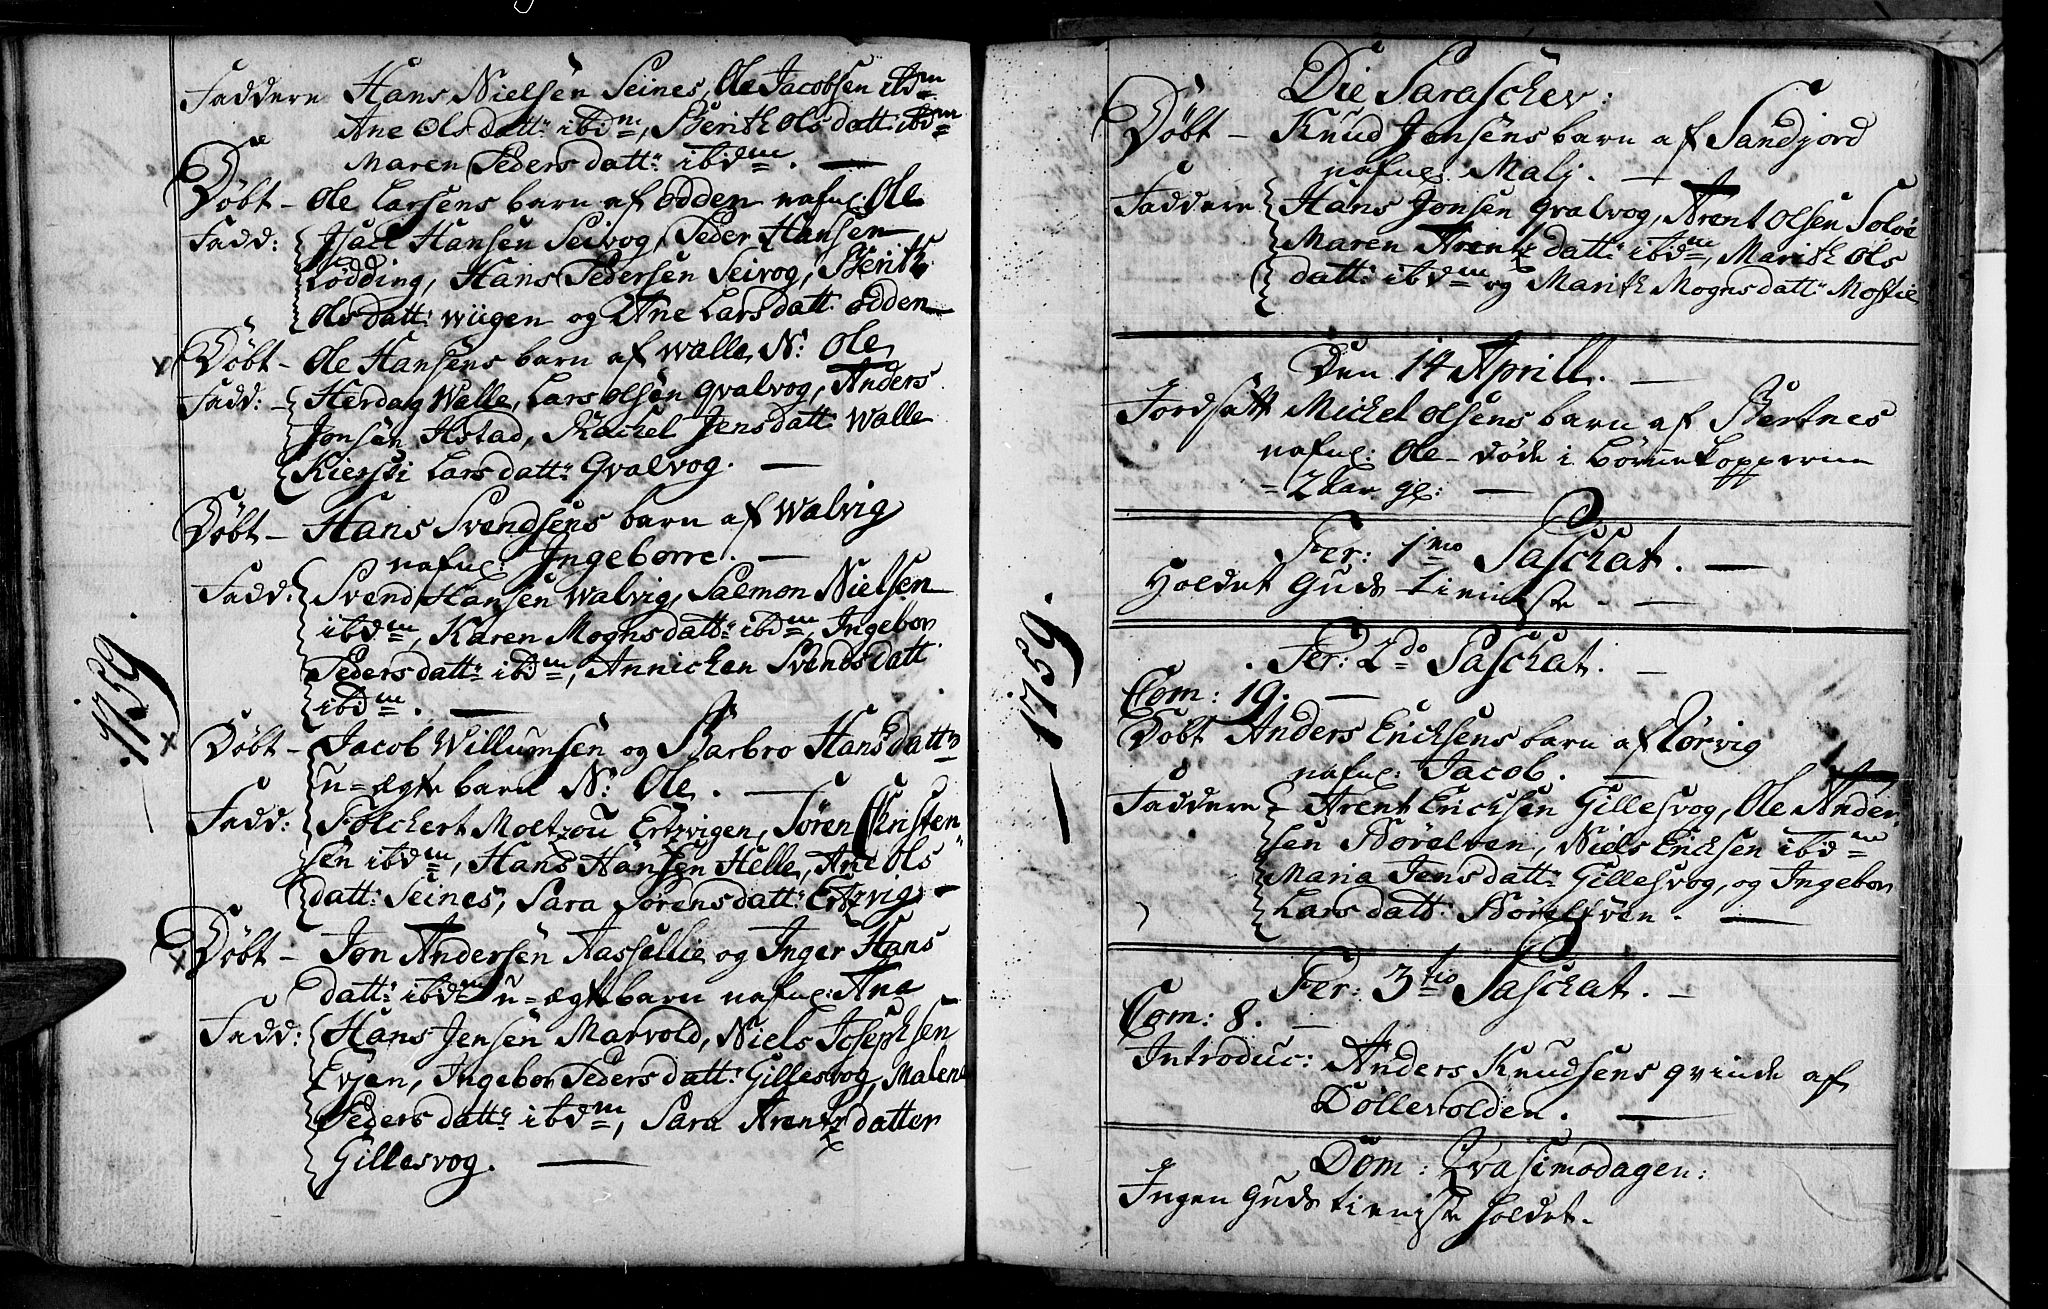 1759.
Faddere Hans Nielsen Seines, Ole Jacobsen ibdm
Ane Olsdatt: ibdm, Berith Olsdatt: ibdm
Maren Pedersdatt: ibdm. —
Døbt – Ole Larsens barn af Odden nafnl: Ole
Fadd: Isach Hansen Seivog, Peder Hansen
Lødding, Hans Pedersen Seivog, Berith
Olsdatt: Wiigen og Ane Larsdatt: Odden —
x Døbt – Ole Hansens barn af Walle N: Ole
Fadd: – Herdag Walle, Lars Olsen Qvalvog, Anders
Jonsen Hstad, Rachel Jensdatt: Walle
Kiersti Larsdatt: Qvalvog. —
Døbt – Hans Svendsens barn af Walvig
nafnl: Ingeborre. —
Fadd: Svend Hansen Walvig, Salmon Nielsen
ibdm, Karen Mognsdatt: ibdm, Ingebor
Pedersdatt: ibdm, Annichen Svendsdatt:
ibdm. —
x Døbt – Jacob Willumsen og Barbro Hansdatt:
u=ægte barn N: Ole. —
Fadd: Folchert Moltzou Ertzvigen, Søren Christen-
sen ibdm, Hans Hansen Helle, Ane Ols
datt: Seines, Sara Sørensdatt: Ertzvig –
x Døbt – Jon Andersen Aassellie og Inger Hans
datt: ibdm u=ægte barn nafnl: Ana
Fadd: Hans Jensen Marvold, Niels Josephsen
Evjen, Ingebor Pedersdatt: Gillesvog, Malene
Pedersdatt: ibdm, Sara Arentzdatter
Gillesvog. —
— 1759.
Die Paraschev:
Døbt – Knud Jonsens barn af Sandjord
nafnl: Malj. —
Faddere Hans Jonsen Qvalvog, Arent Olsen Soløe
Maren Arentzdatt: ibdm, Marith Ols
datt: ibdm og Marith Mognsdatt: Mostie
Den 14 Aprill. —
Jordsatt Michel Olsens barn af Bertnes
nafnl: Ole – døde i børnekopperne
= 2 Aar gl: —
Fer: 1mo Paschat. —
Holdet Guds tieniste. —
Fer: 2do Paschat. —
Com: 19. —
Døbt Anders Ericksens barn af Nørvig
nafnl: Jacob. —
Faddere – Arent Ericksen Gillesvog, Ole Ander-
sen Børelven, Niels Ericksen ibdm
Maria Jensdatt: Gillesvog, og Ingebor
Larsdatt: Børelfven. —
Fer: 3tio Paschat. —
Com: 8. —
Introduc: Anders Knudsens qvinde af
Døllevolden. —
Dom: Qvasimodagen:
Ingen Guds tieniste holdet.